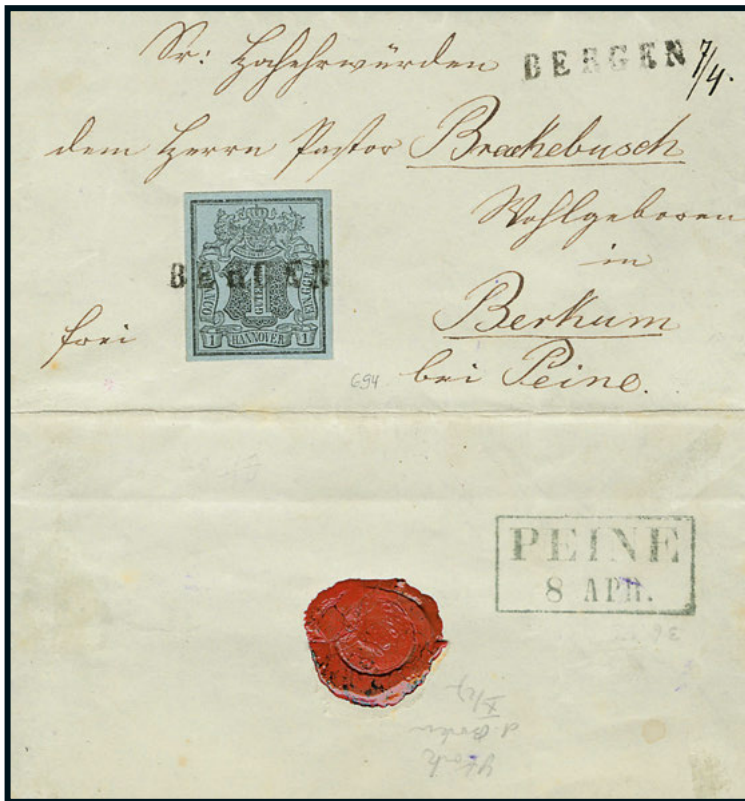 Sr: Hochehrwürden BERGEN 7/4.
dem Herrn Pastor Brackebusch
Wohlgeboren
in
BERGEN
Berkum
frei
1 HANNOVER 1
bei Peine.
694
PEINE
8 APR.